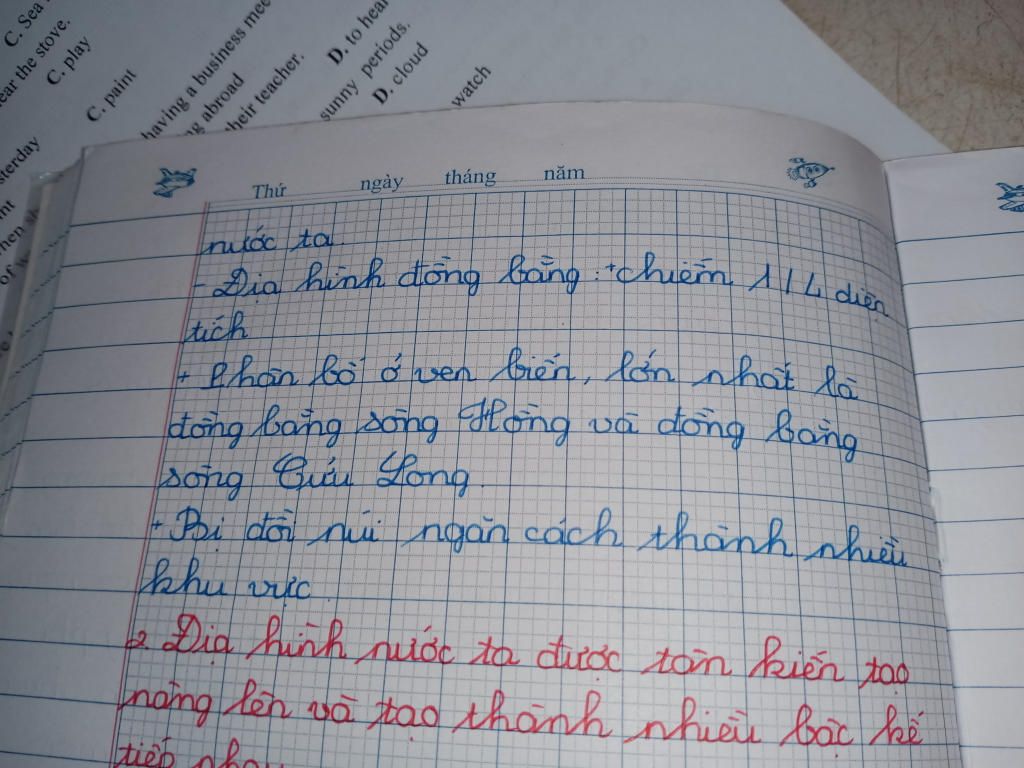 C. Sea
ear the stove.
C. play
C. paint
sterday
having a business mee
g abroad
heir teacher.
D. to hear
sunny periods.
D. cloud
watch
Thứ ngày tháng năm
nước ta.
- Địa hình đồng bằng: + chiếm 1/4 diện
tích
+ Phân bố ở ven biển, lớn nhất là
đồng bằng sông Hồng và đồng bằng
sông Cửu Long.
+ Bị đồi núi ngăn cách thành nhiều
khu vực.
2. Địa hình nước ta được tân kiến tạo
nâng lên và tạo thành nhiều bậc kế
tiếp nhau